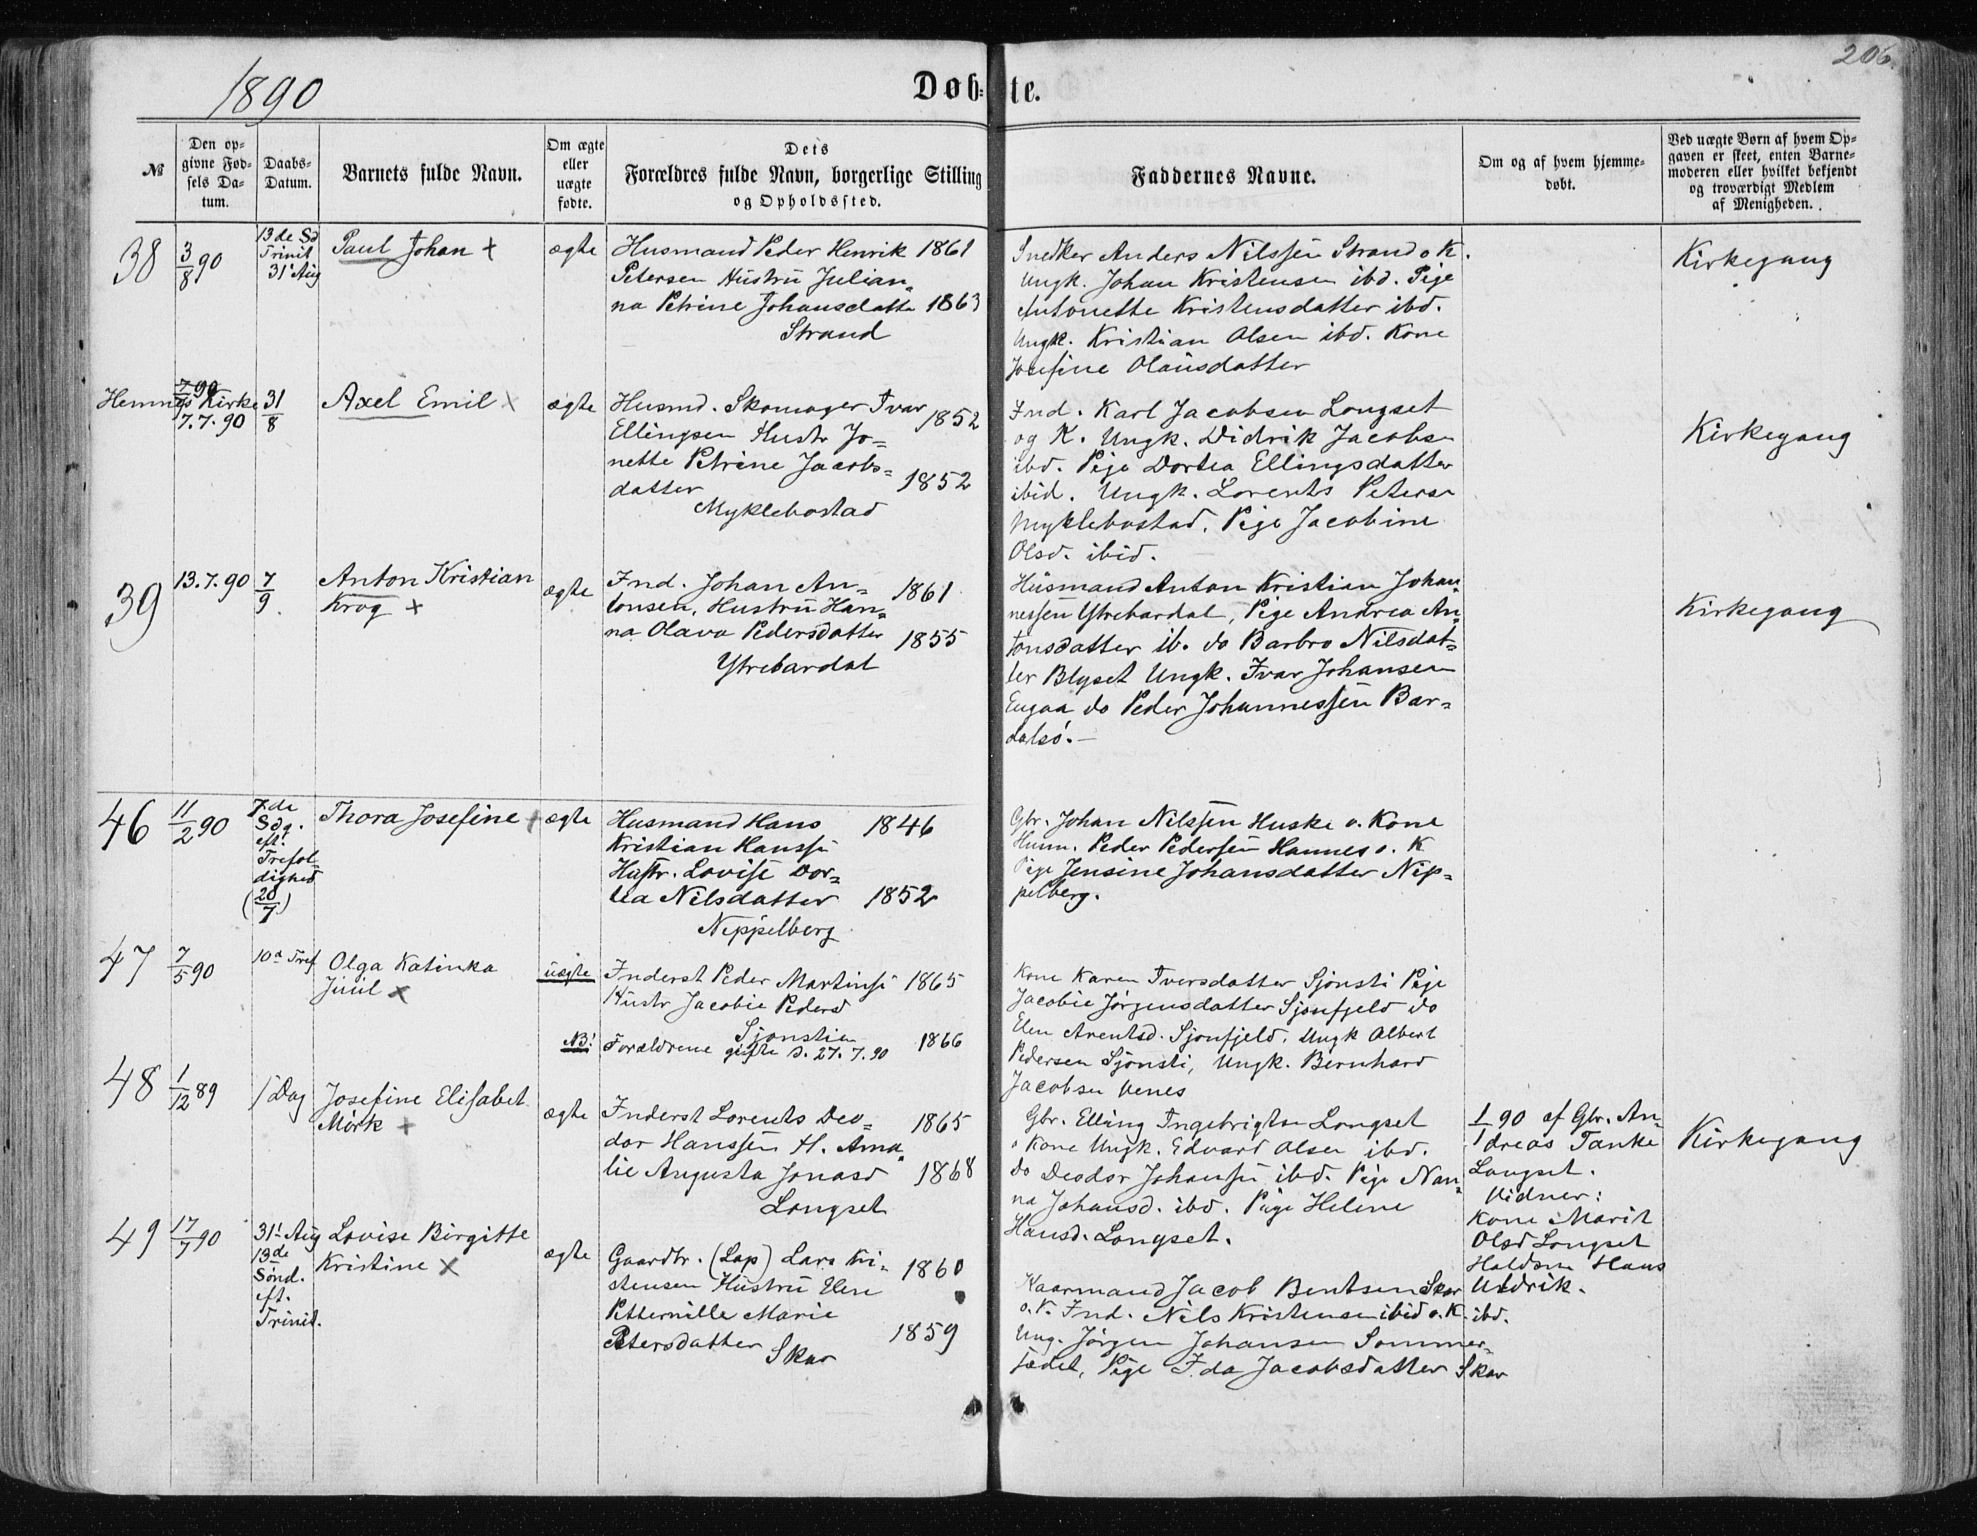 206.
1890
Døb-te.
№
Den op-
givne Fød-
sels Da-
tum.
Daabs-
Datum.
Barnets fulde Navn.
Om ægte
eller
uægte
fødte.
Dets
Forældres fulde Navn, borgerlige Stilling
og Opholdssted.
Faddernes Navne.
Om og af hvem hjemme-
døbt.
Ved uægte Børn af hvem Op-
gaven er skeet, enten Barne-
moderen eller hvilket bekjendt
og troværdigt Medlem
af Menigheden.
38
3/8 90
13de Sd
Trinit
31' Aug
Paul Johan +
ægte
Husmand Peder Henrik 1861
Petersen Hustru Julian-
na Petrine Johansdatter 1863
Strand
Snedker Anders Nilssen Strand o K.
Ungk. Johan Kristensen ibd. Pige
Antonette Kristensdatter ibd.
Ungk. Kristian Olsen ibd. Kone
Josefine Olausdatter
Kirkegang
Hemnes Kirke
7.7.90
31/8
Axel Emil x
ægte
Husmd. Skomager Ivar 1852
Ellingsen Hustr Jo-
nette Petrine Jacobs-
datter 1852
Myklebostad
Ind. Karl Jacobsen Longset
og K. Ungk. Didrik Jacobsen
ibd. Pige Dortea Ellingsdatter
ibid. Ungk. Lorents Petersen
Myklebostad. Pige Jacobine
Olsd. ibid.
Kirkegang
39
13.7.90
7/9
Anton Kristian
Krog +
ægte
Ind. Johan An- 1861
tonsen, Hustru Han-
na Olava Pedersdatter 1855
Ytrebardal
Husmand Anton Kristian Johan-
nessen Ytrebardal, Pige Andrea An-
tonsdatter ib. do Barbro Nilsdat-
ter Blyset Ungk. Ivar Johansen
Engaa do Peder Johannessen Bar-
dalsö.—
Kirkegang
46
11/2 90
7de
Sdg.
eft.
Trefol
dighed
(20/7)
Thora Josefine +
ægte
Husmand Hans 1846
Kristian Hanss
Hustr. Lovise Dor-
tea Nilsdatter 1852
Neppelberg
Gbr. Johan Nilssen Huske o. Kone
Husm. Peder Pedersen Hannes o. K
Pige Jensine Johansdatter Nep-
pelberg.
47
7/5 90
10de Tref
Olga Katinka
Juul x
uægte
Inderst Peder Martins 1865
Hustr Jacobie Pedersd
Sjonstien 1866
NB! Forældrene gifte d. 27.7.90
Kone Karen Iversdatter Sjonsti Pige
Jacobie Jørgensdatter Sjonfjeld do
Elen Arentsd. Sjonfjeld. Ungk Albert
Pedersen Sjonsti, Ungk. Bernhard
Jacobsen Venes
48
1/12 89
1 Dag
Josefine Elisabet
Mörk +
ægte
Inderst Lorents Deo- 1865
dor Hanssen H. Ama-
lie Augusta Jonasd 1868
Longset
Gbr. Elling Ingebrigtsen Longset
o Kone Ungk. Edvard Olsen ibd.
do Deodor Johanssen ibd. Pige Nan-
na Johansd. ibd. Pige Helene
Hansd. Longset.
1/1 90 af Gbr. An-
dreas Tanke
Longset.
Vidner:
Kone Marit
Olsd Longset
Holdsm Hans
Uldrik.
Kirkegang
49
17/7 90
31' Aug
13de
Sönd.
eft.
Trinit.
Lovise Birgitte
Kristine x
ægte
Gaardbr. (Lap) Lars Kri- 1860
stensen Hustru Elen
Petternille Marie
Petersdatter 1859
Skar
Kaarmand Jacob Bentsen Skar
o. K. Ind. Nils Kristensen ibid o. K. ibd.
Ung. Jørgen Johansen Sommer-
sædet, Pige Ida Jacobsdatter Skar